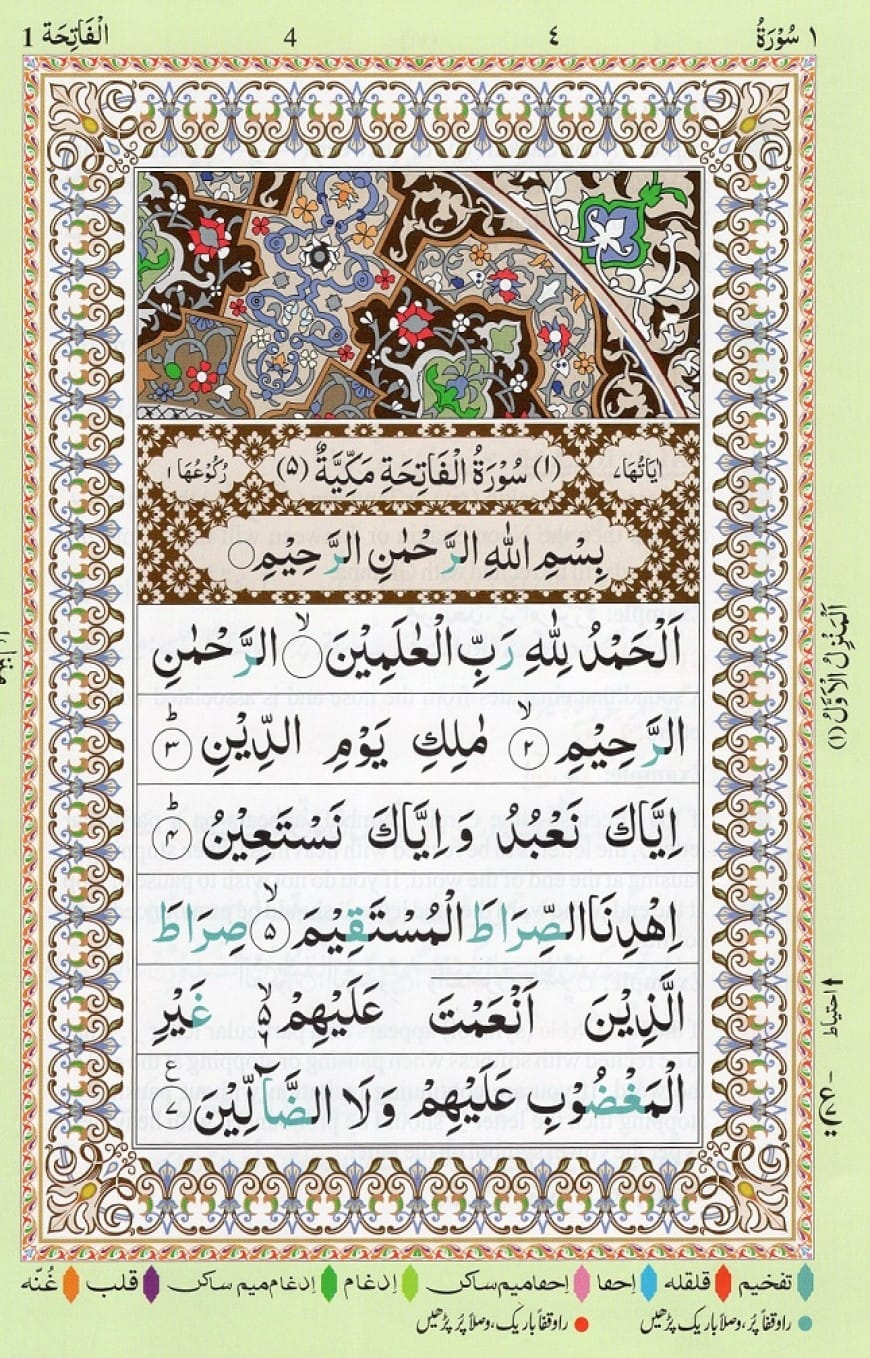 ١ سُوْرَةُ ٤ 4 الْفَاتِحَة 1
اٰيَاتُهَا ٧ (١) سُوْرَةُ الْفَاتِحَةِ مَكِّيَّةٌ (٥) رُكُوْعُهَا ١
بِسْمِ اللّٰهِ الرَّحْمٰنِ الرَّحِيْمِ
اَلْحَمْدُ لِلّٰهِ رَبِّ الْعٰلَمِيْنَ ۙ الرَّحْمٰنِ
الرَّحِيْمِ ۙ ٢ مٰلِكِ يَوْمِ الدِّيْنِ ؕ ٣
اِيَّاكَ نَعْبُدُ وَ اِيَّاكَ نَسْتَعِيْنُ ؕ ٤
اِهْدِنَا الصِّرَاطَ الْمُسْتَقِيْمَ ۙ ٥ صِرَاطَ
الَّذِيْنَ اَنْعَمْتَ عَلَيْهِمْ ۙ غَيْرِ
الْمَغْضُوْبِ عَلَيْهِمْ وَلَا الضَّآلِّيْنَ ع ٧
اَلْمَنْزِلُ الْاَوَّلُ (١)
احتیاط
تفخيم قلقله اِخفا اِخفا ميم ساكن اِدغام اِدغام ميم ساكن قلب غُنّه
را وقفاً پُر، وصلاً باریک پڑھیں را وقفاً باریک، وصلاً پُر پڑھیں